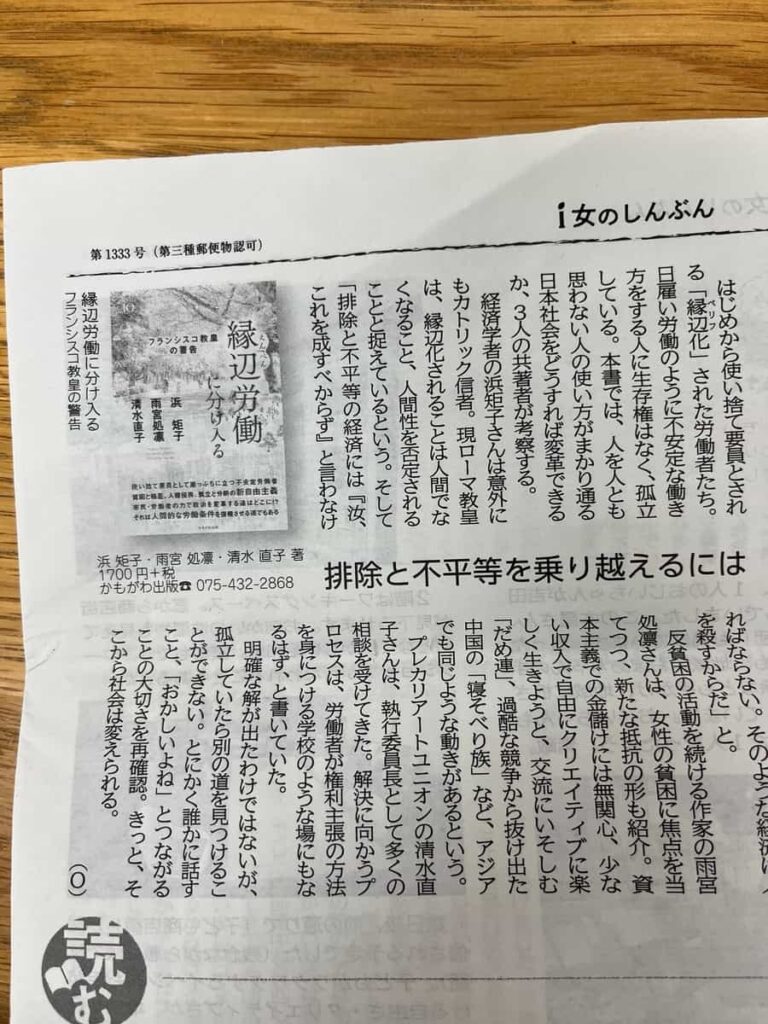 i女のしんぶん
第1333号（第三種郵便物認可）
はじめから使い捨て要員とされ
る「縁辺化」された労働者たち。
ペリフ
日雇い労働のように不安定な働き
方をする人に生存権はなく、孤立
している。本書では、人を人とも
思わない人の使い方がまかり通る
日本社会をどうすれば変革できる
か、3人の共著者が考察する。
経済学者の浜矩子さんは意外に
もカトリック信者。現ローマ教皇
は、縁辺化されることは人間でな
くなること、人間性を否定される
ことと捉えているという。そして
「排除と不平等の経済には『汝、
これを成すべからず』と言わなけ
フランシスコ教皇
の警告
縁辺労働
に分け入る
浜 矩子
雨宮処凛
清水直子
使い捨て要員として崖っぷちに立つ不安定労働者
貧困と格差、人権侵害、孤立と分断の新自由主義
市民・労働者の力で政治を変革する道はどこに!?
それは人間的な労働条件を獲得させる道でもある
縁辺労働に分け入る
フランシスコ教皇の警告
浜 矩子・雨宮 処凛・清水 直子 著
1700円+税
かもがわ出版☎075-432-2868
排除と不平等を乗り越えるには
ればならない。そのような経済は人
を殺すからだ」と。
反貧困の活動を続ける作家の雨宮
処凛さんは、女性の貧困に焦点を当
てつつ、新たな抵抗の形も紹介。資
本主義での金儲けには無関心、少な
い収入で自由にクリエイティブに楽
しく生きようと、交流にいそしむ
「だめ連」、過酷な競争から抜け出た
中国の「寝そべり族」など、アジア
でも同じような動きがあるという。
プレカリアートユニオンの清水直
子さんは、執行委員長として多くの
相談を受けてきた。解決に向かうプ
ロセスは、労働者が権利主張の方法
を身につける学校のような場にもな
るはず、と書いていた。
明確な解が出たわけではないが、
孤立していたら別の道を見つけるこ
とができない。とにかく誰かに話す
こと、「おかしいよね」とつながる
ことの大切さを再確認。きっと、そ
こから社会は変えられる。
（O）
読む